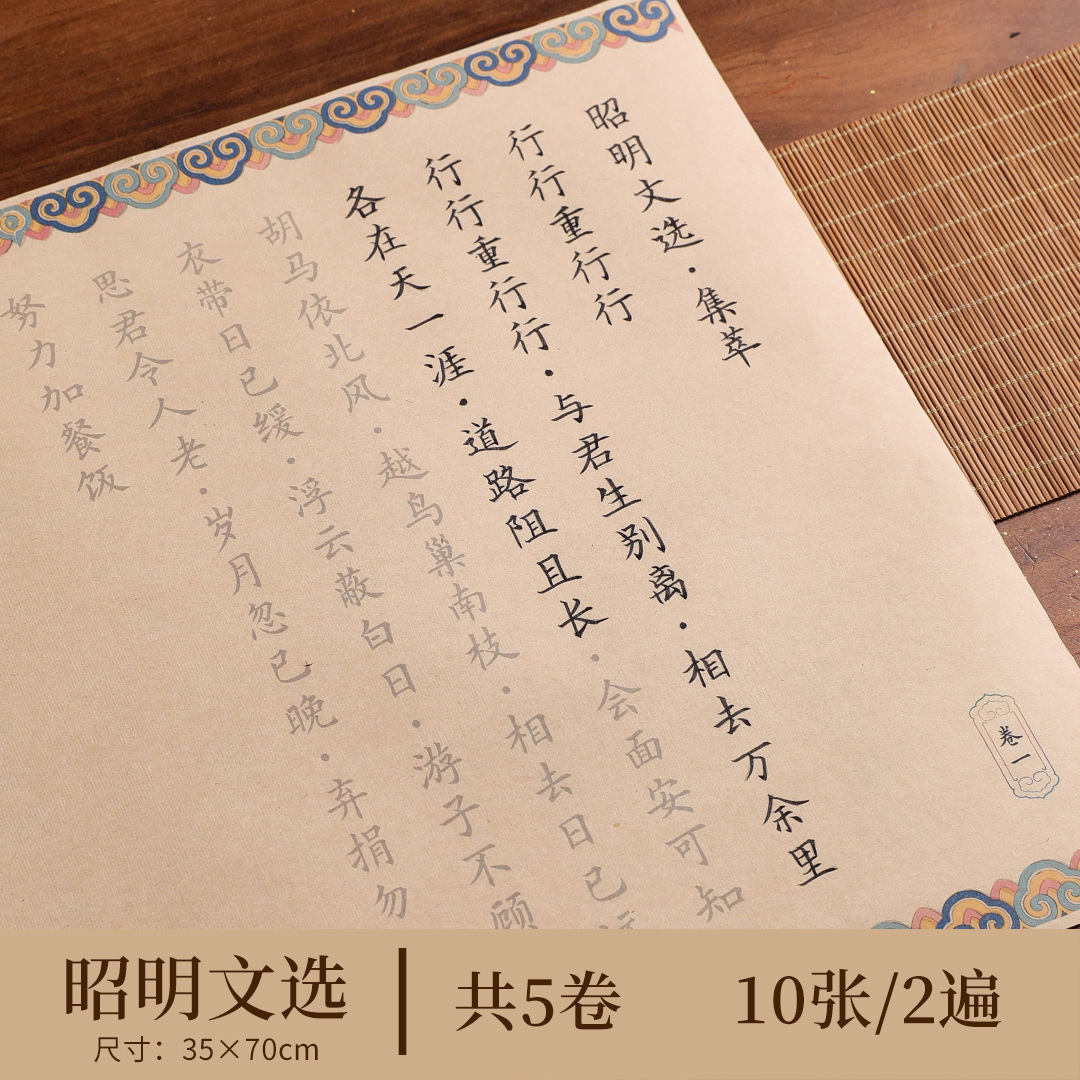 昭明文选·集萃
行行重行行
行行重行行·与君生别离·相去万余里
各在天一涯·道路阻且长·会面安可知
胡马依北风·越鸟巢南枝·相去日已
衣带日已缓·浮云蔽白日·游子不顾
思君令人老·岁月忽已晚·弃捐勿
努力加餐饭
卷一
昭明文选
尺寸：35×70cm
共5卷
10张/2遍